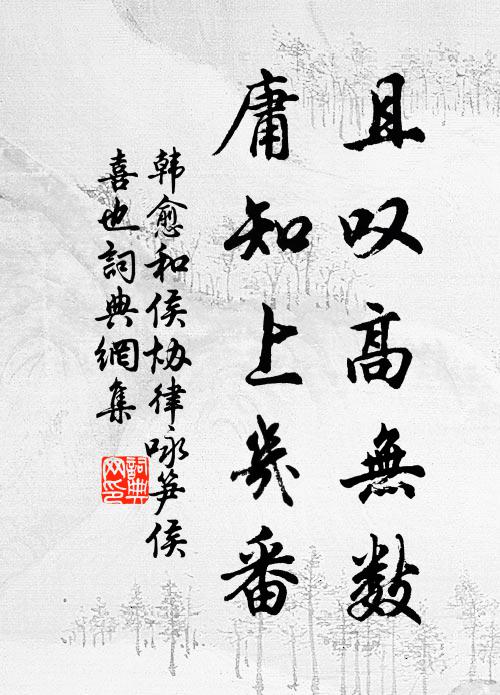 且叹高無数
庸知上幾番
韩愈和侯协律咏笋侯
喜也詞典網集
詞典
网印